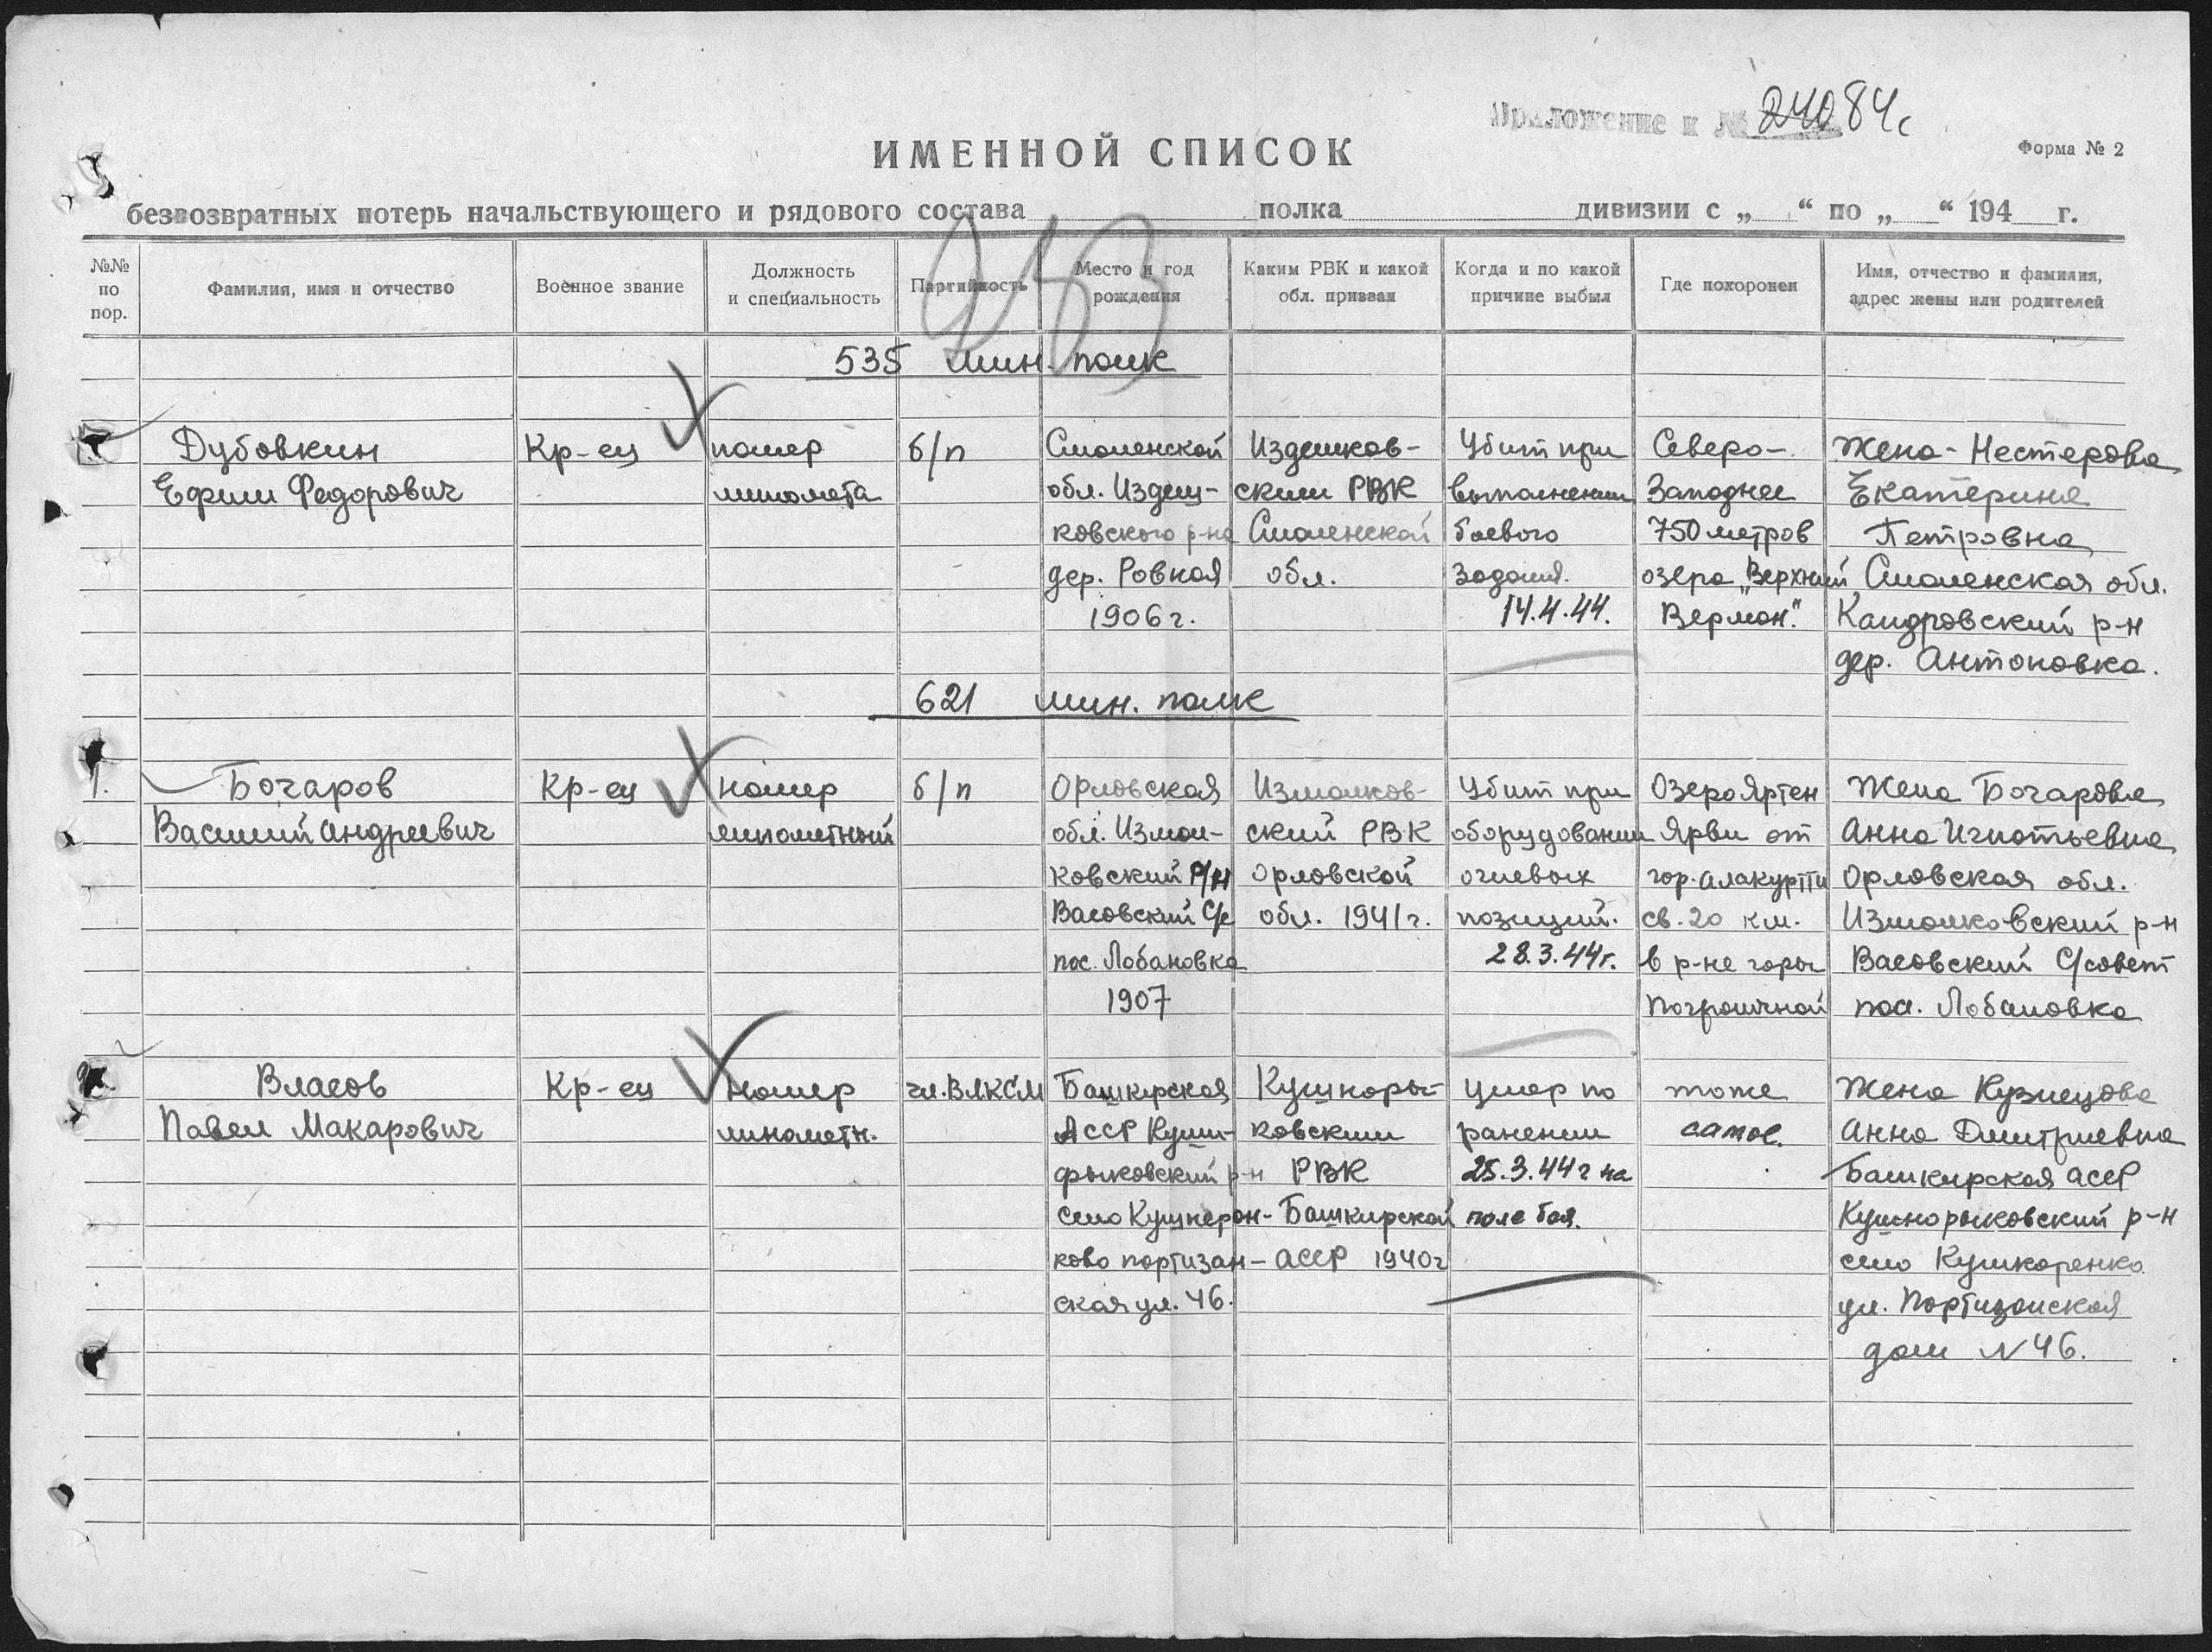 Приложение к № 24084с
ИМЕННОЙ СПИСОК
Форма № 2
безвозвратных потерь начальствующего и рядового состава полка дивизии с „ “ по „ “ 194 г.
№№ по пор.
Фамилия, имя и отчество
Военное звание
Должность и специальность
Партийность
Место и год рождения
Каким РВК и какой обл. призван
Когда и по какой причине выбыл
Где похоронен
Имя, отчество и фамилия, адрес жены или родителей
535 мин. полк
Дубовкин
Ефим Федорович
Кр-ец
номер
миномета
б/п
Смоленской
обл. Издеш-
ковского р-на
дер. Ровная
1906 г.
Издешков-
ским РВК
Смоленской
обл.
Убит при
выполнении
боевого
задания.
14.4.44.
Северо-
Западнее
750 метров
озера „Верхний
Верман".
Жена - Нестерова
Екатерина
Петровна
Смоленская обл.
р-н
дер. Антоновка.
621 мин. полк
1.
Бочаров
Василий Андреевич
Кр-ец
номер
минометный
б/п
Орловская
обл. Измал-
ковский р/н
Васовский С/с
пос. Лобановка
1907
Измалков-
ский РВК
Орловской
обл. 1941 г.
Убит при
оборудовании
огневых
позиций.
28.3.44г.
Озеро Яртен
Ярви от
гор. Алакуртти
св. 20 км.
в р-не горы
Пограничной
Жена Бочарова
Анна Игнатьевна
Орловская обл.
Измалковский р-н
Васовский С/совет
пос. Лобановка
Власов
Павел Макарович
Кр-ец
Номер
минометн.
чл. ВЛКСМ
Башкирская
АССР Кушн-
р-н
село
ково партизан-
ская ул. 46.
Кушнары-
ковским
РВК
Башкирской
АССР 1940г
Умер по
ранении
25.3.44 г на
поле боя.
тоже
самое.
Жена Кузнецова
Анна Дмитриевна
Башкирская АССР
Кушнарыковский р-н
село Кушкаренко
ул. Партизанская
дом N 46.